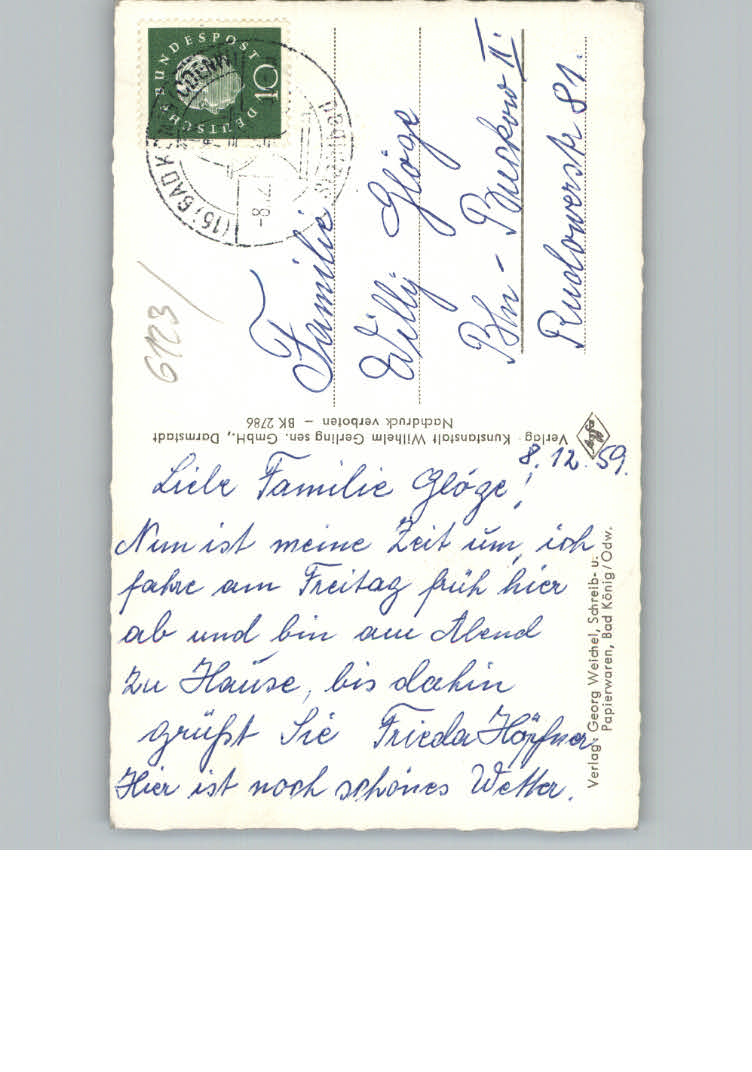 8.12.59.
Liebe Familie Glöge!
Nun ist meine Zeit um, ich
fahre am Freitag früh hier
ab und bin am Abend
zu Hause, bis dahin
grüßt Sie Frieda Höpfner
Hier ist noch schönes Wetter.
Familie
Willy Glöge
Bln - Buckow II.
Rudowerstr 81.
6123/
DEUTSCHE BUNDESPOST
10
(15) BAD KÖNIG
Verlag: Kunstanstalt Wilhelm Gerling sen. GmbH., Darmstadt
Nachdruck verboten – BK 2786
Agfa
Verlag: Georg Weichel, Schreib- u.
Papierwaren, Bad König/Odw.